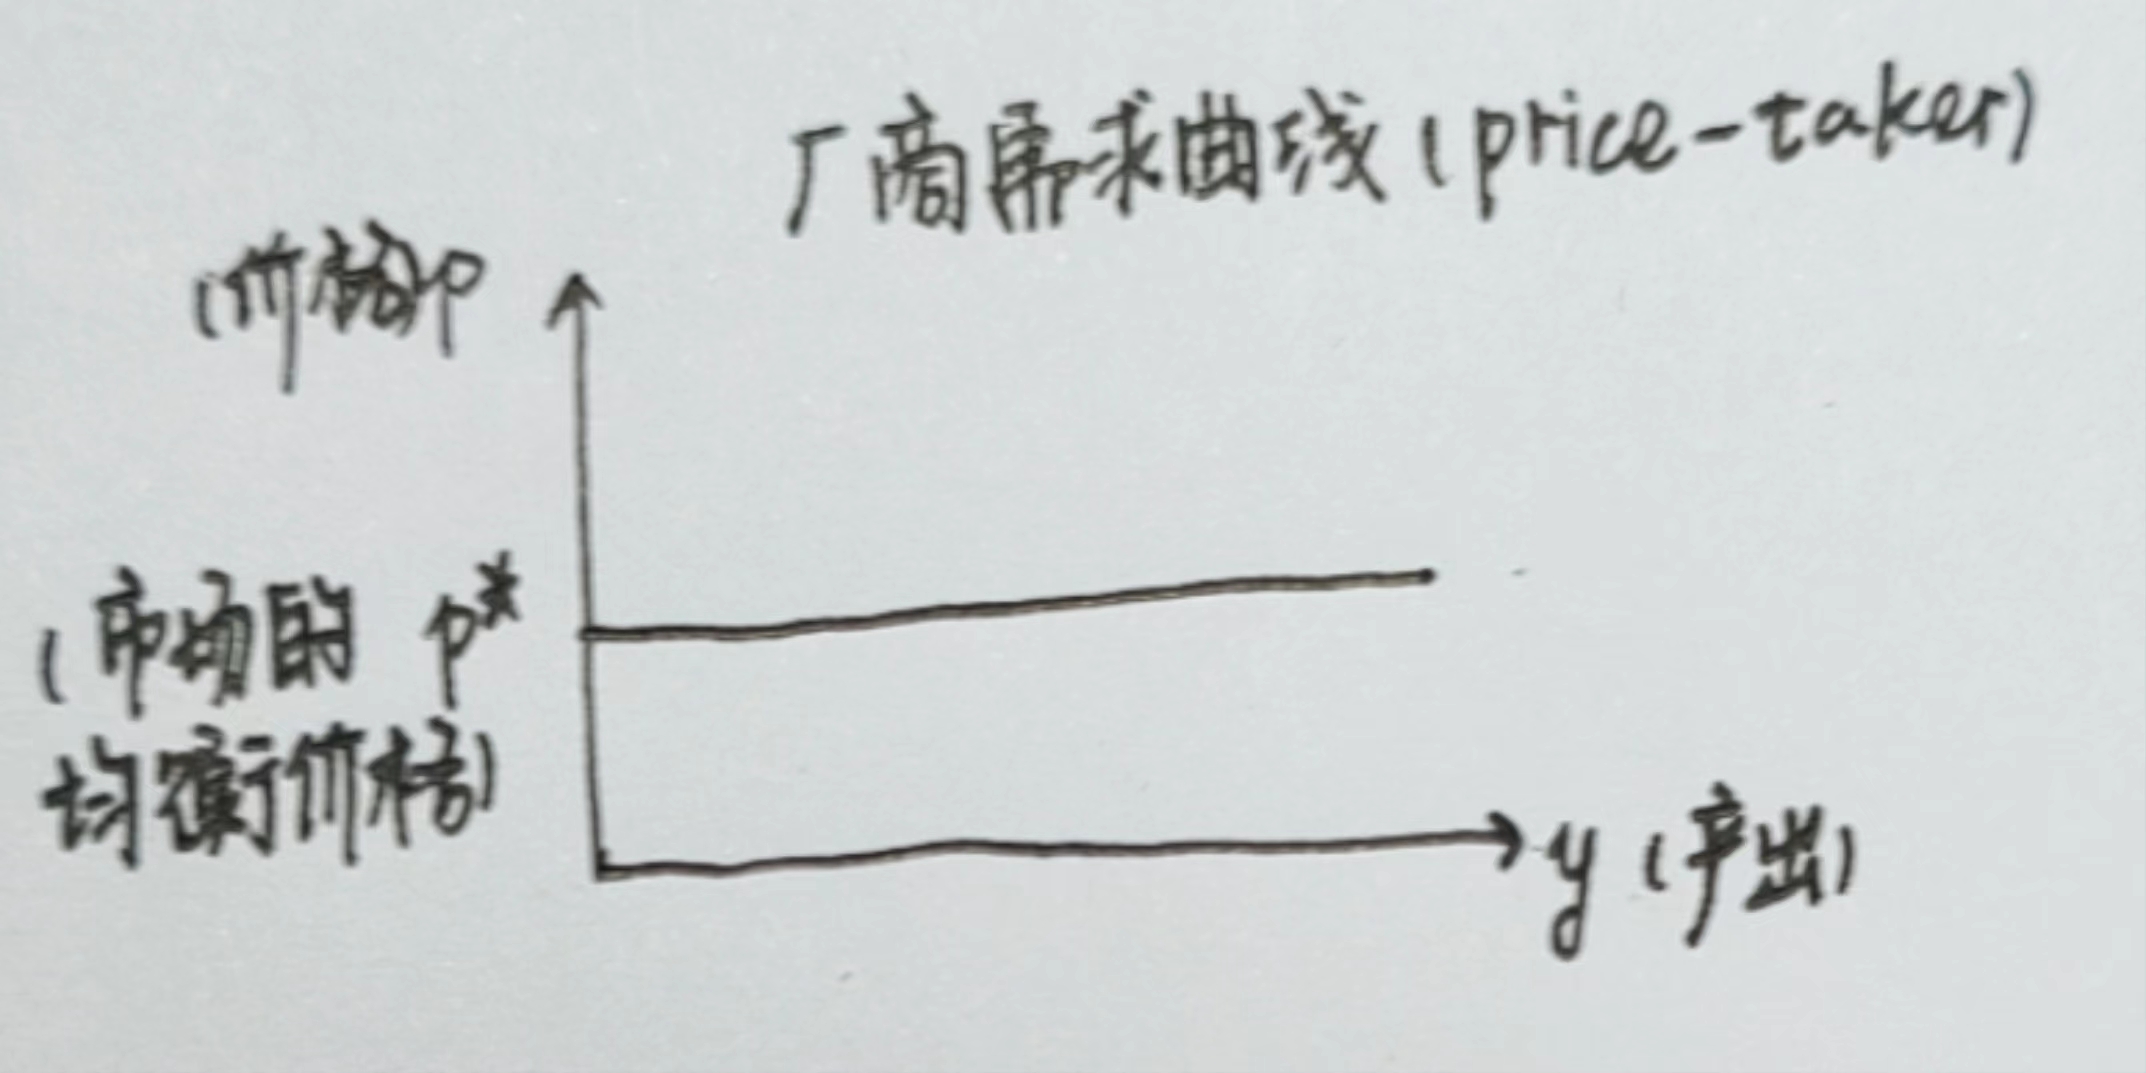 厂商需求曲线(price-taker)
(价格)p
(市场的 p*
均衡价格)
y (产出)